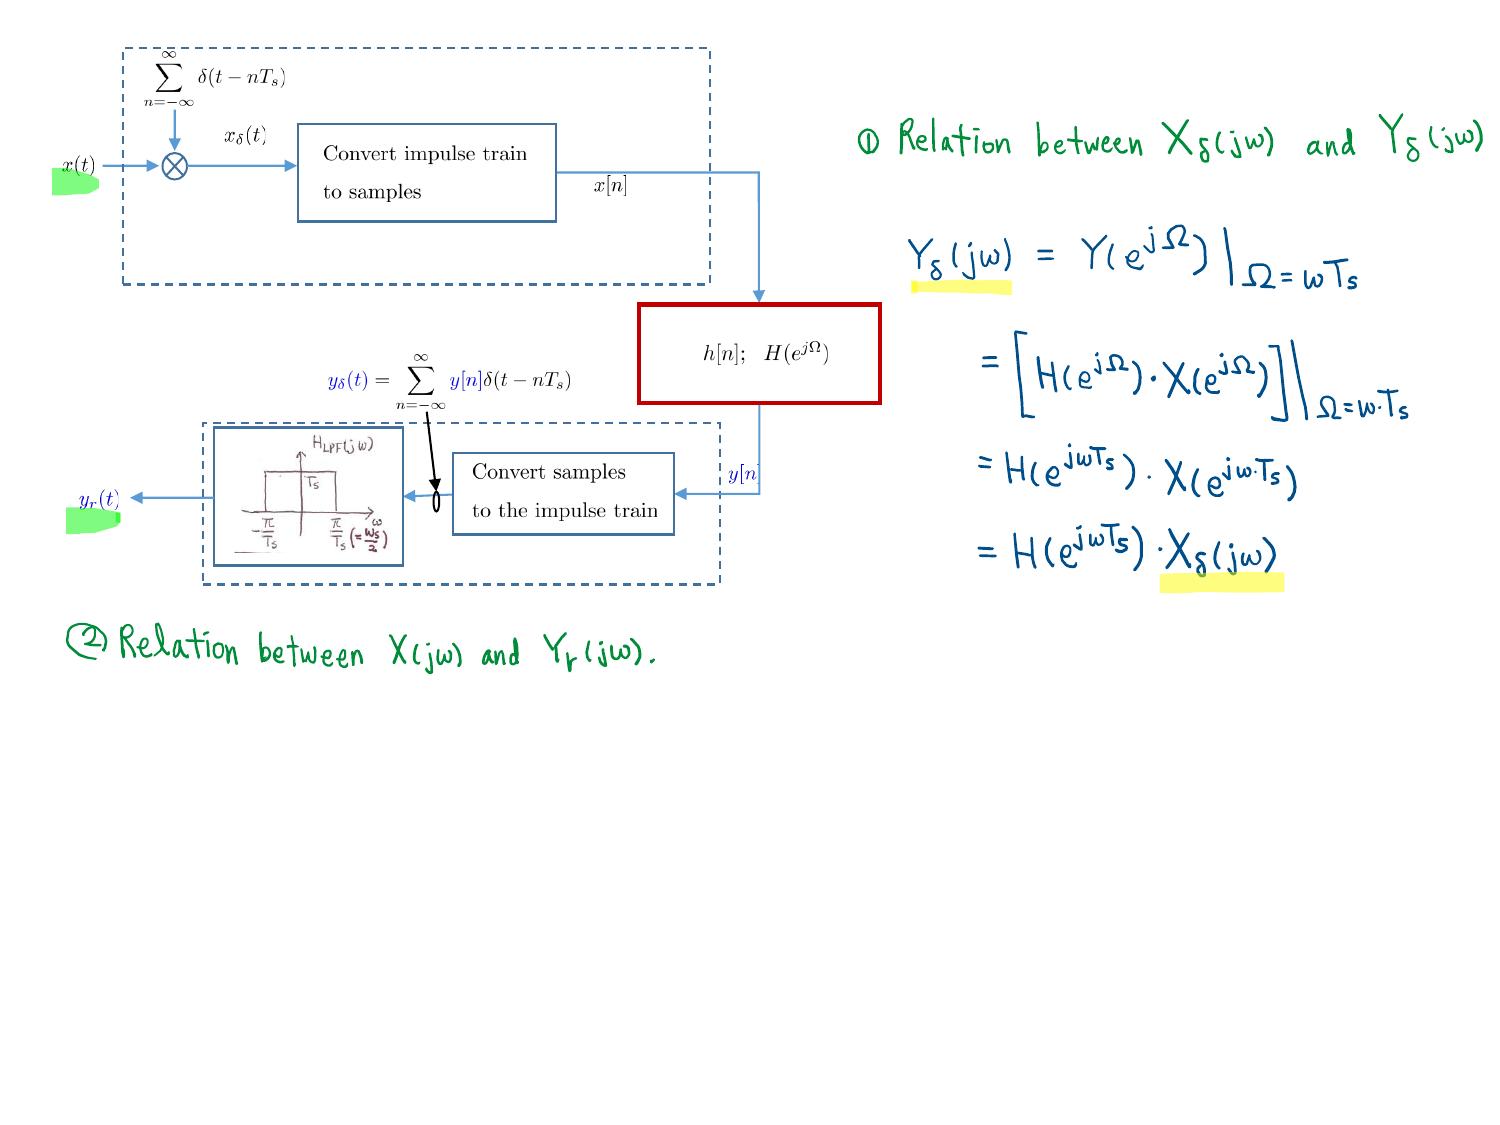 ∞
∑ δ(t − nTₛ)
n=−∞
x(t)
x_δ(t)
Convert impulse train
to samples
x[n]
h[n]; H(e^{jΩ})
y_δ(t) = ∑_{n=−∞}^{∞} y[n]δ(t − nTₛ)
H_LPF(jω)
Tₛ
ω
−π/Tₛ
π/Tₛ (=ωₛ/2)
Convert samples
to the impulse train
y[n]
y_r(t)
① Relation between X_δ(jω) and Y_δ(jω)
Y_δ(jω) = Y(e^{jΩ})|_{Ω=ωTₛ}
= [H(e^{jΩ})·X(e^{jΩ})]|_{Ω=ω·Tₛ}
= H(e^{jωTₛ}) · X(e^{jω·Tₛ})
= H(e^{jωTₛ}) · X_δ(jω)
② Relation between X(jω) and Y_r(jω).